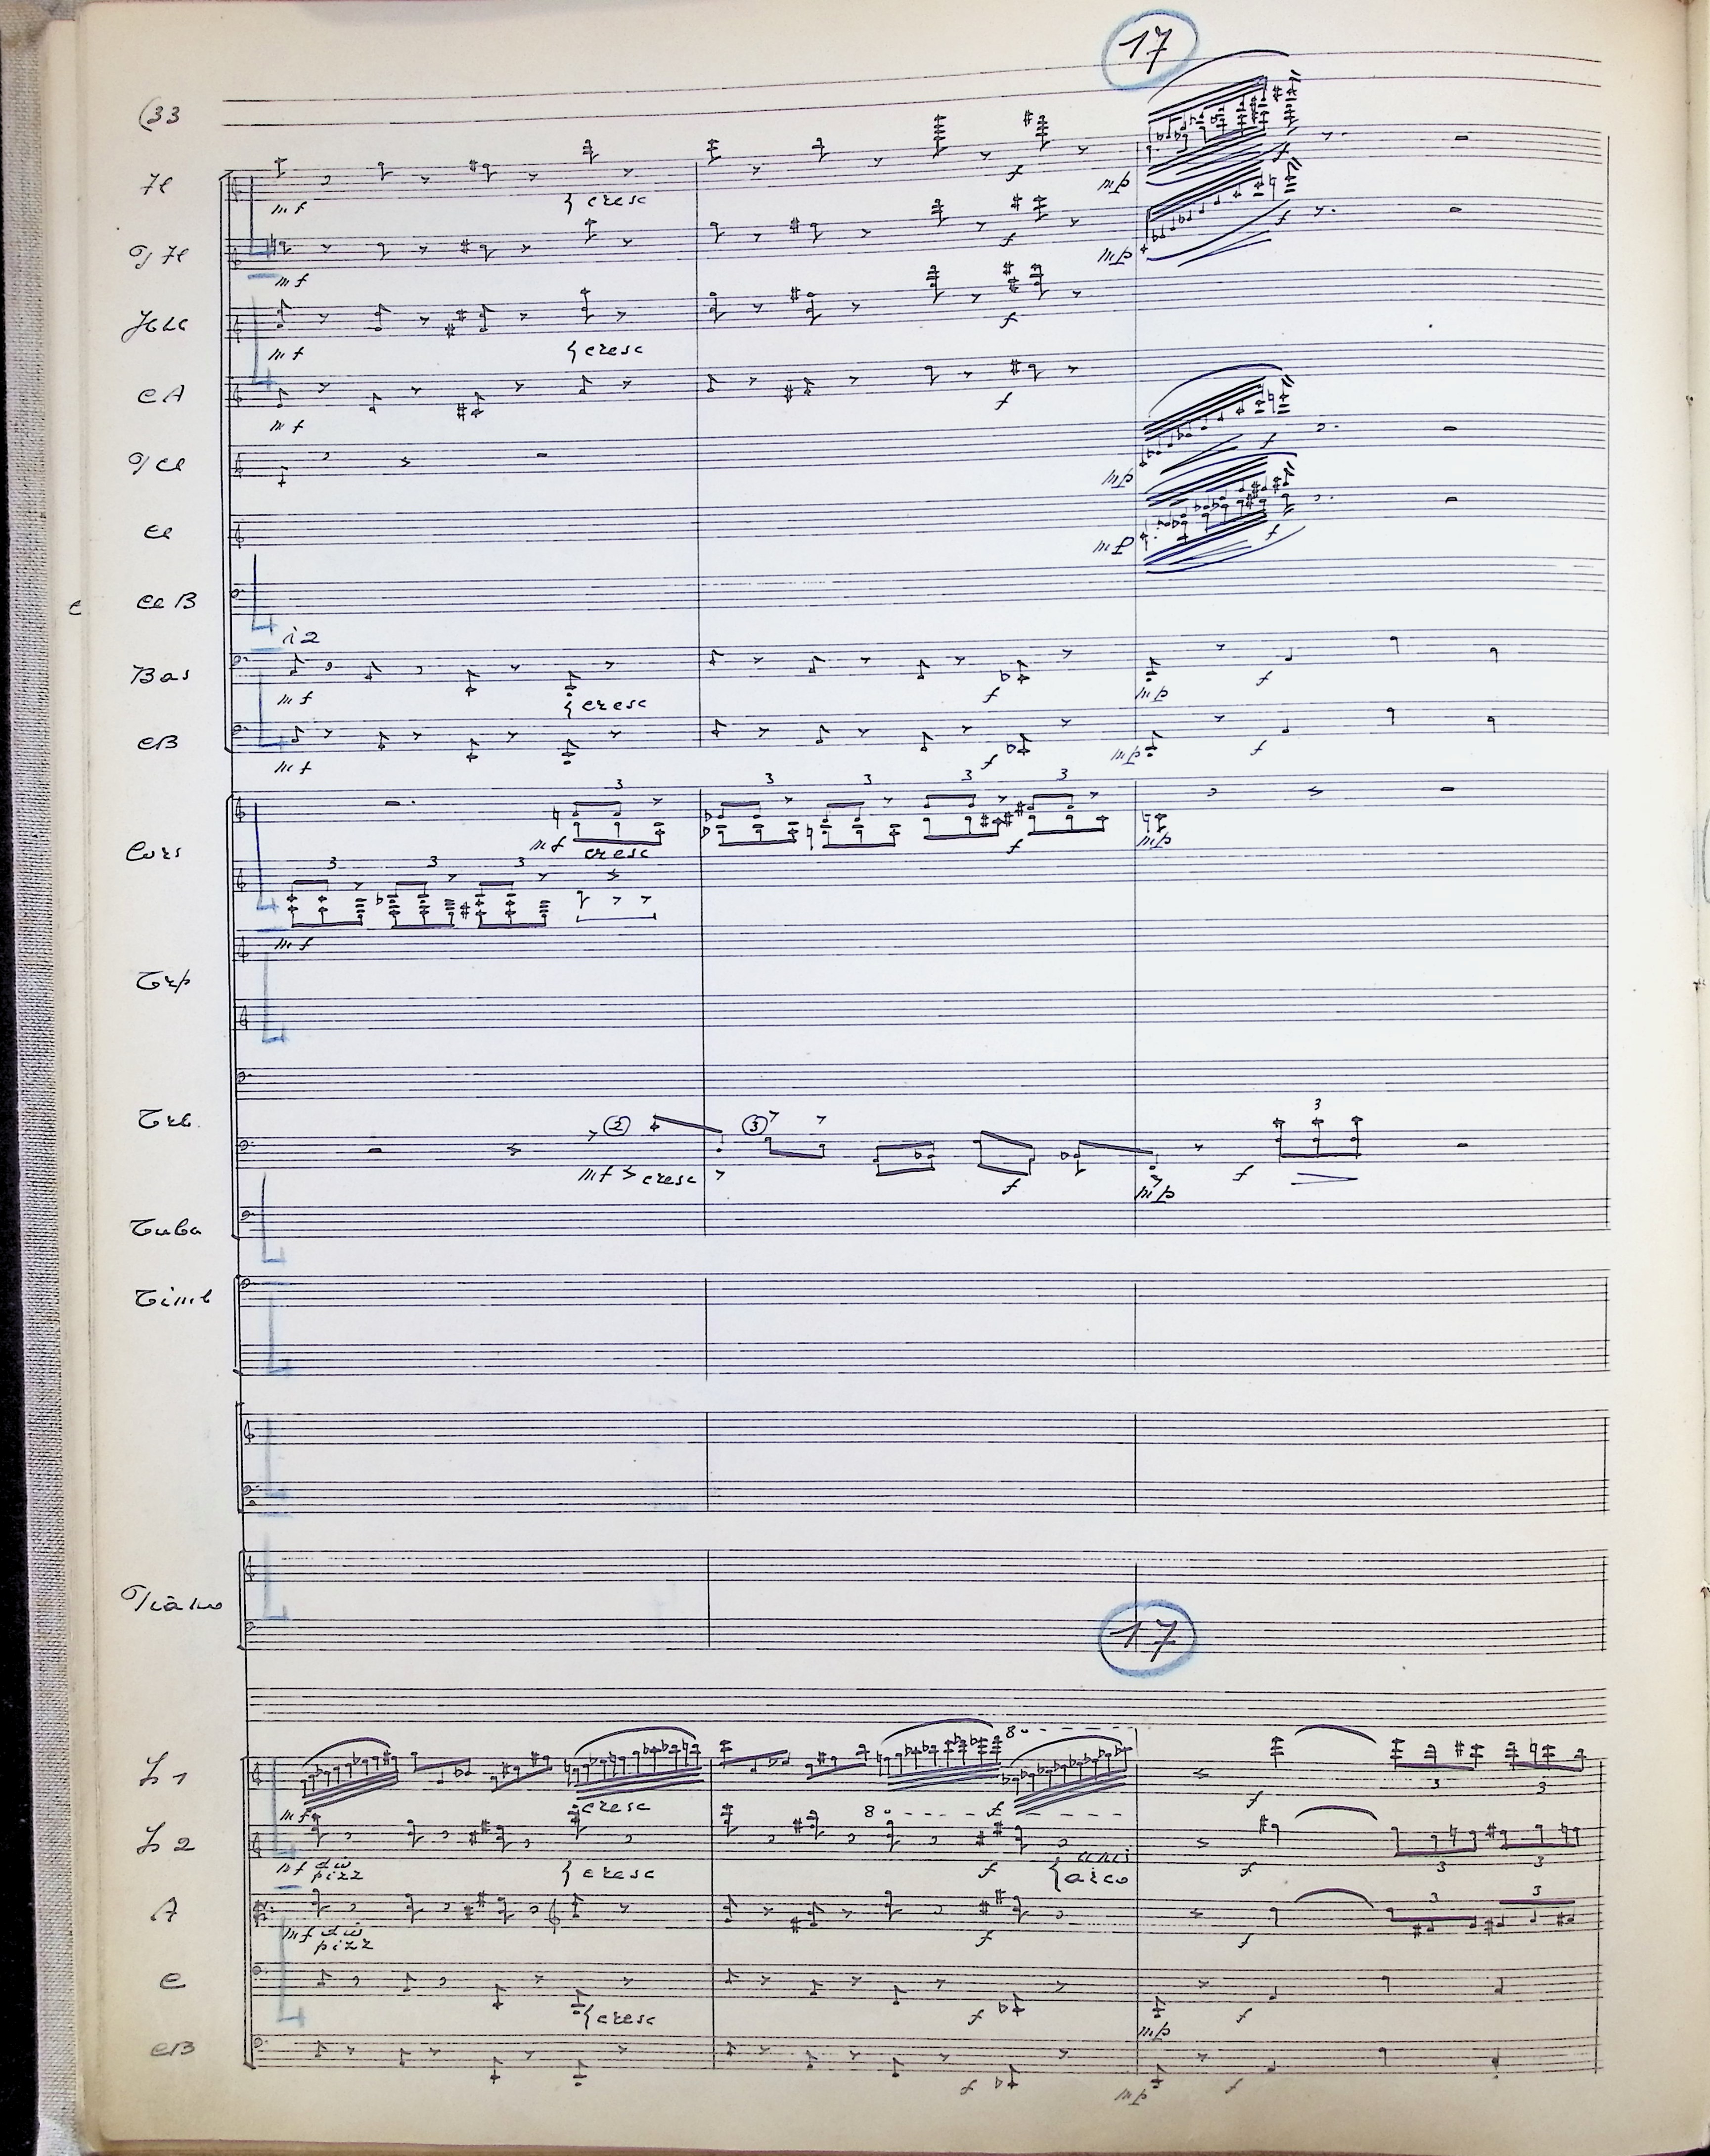 17
(33
Fl
mf
cresc
f
mp
f
mf
f
mp
f
mf
cresc
f
cA
mf
f
mp
f
cl
mp
f
c
cl B
à 2
Bas
mf
cresc
f
mp
f
cB
mf
f
mp
f
3
3
3
3
3
Cors
mf
cresc
f
mp
3
3
3
mf
Trp
Trb.
2
3
3
mf
cresc
f
mp
f
Tuba
Timb
Piano
17
8
mf
cresc
f
f
3
3
8
mf div
pizz
cresc
f
unis
arco
f
3
3
A
mf div
pizz
f
f
3
3
c
cresc
f
mp
f
cB
f
mp
f